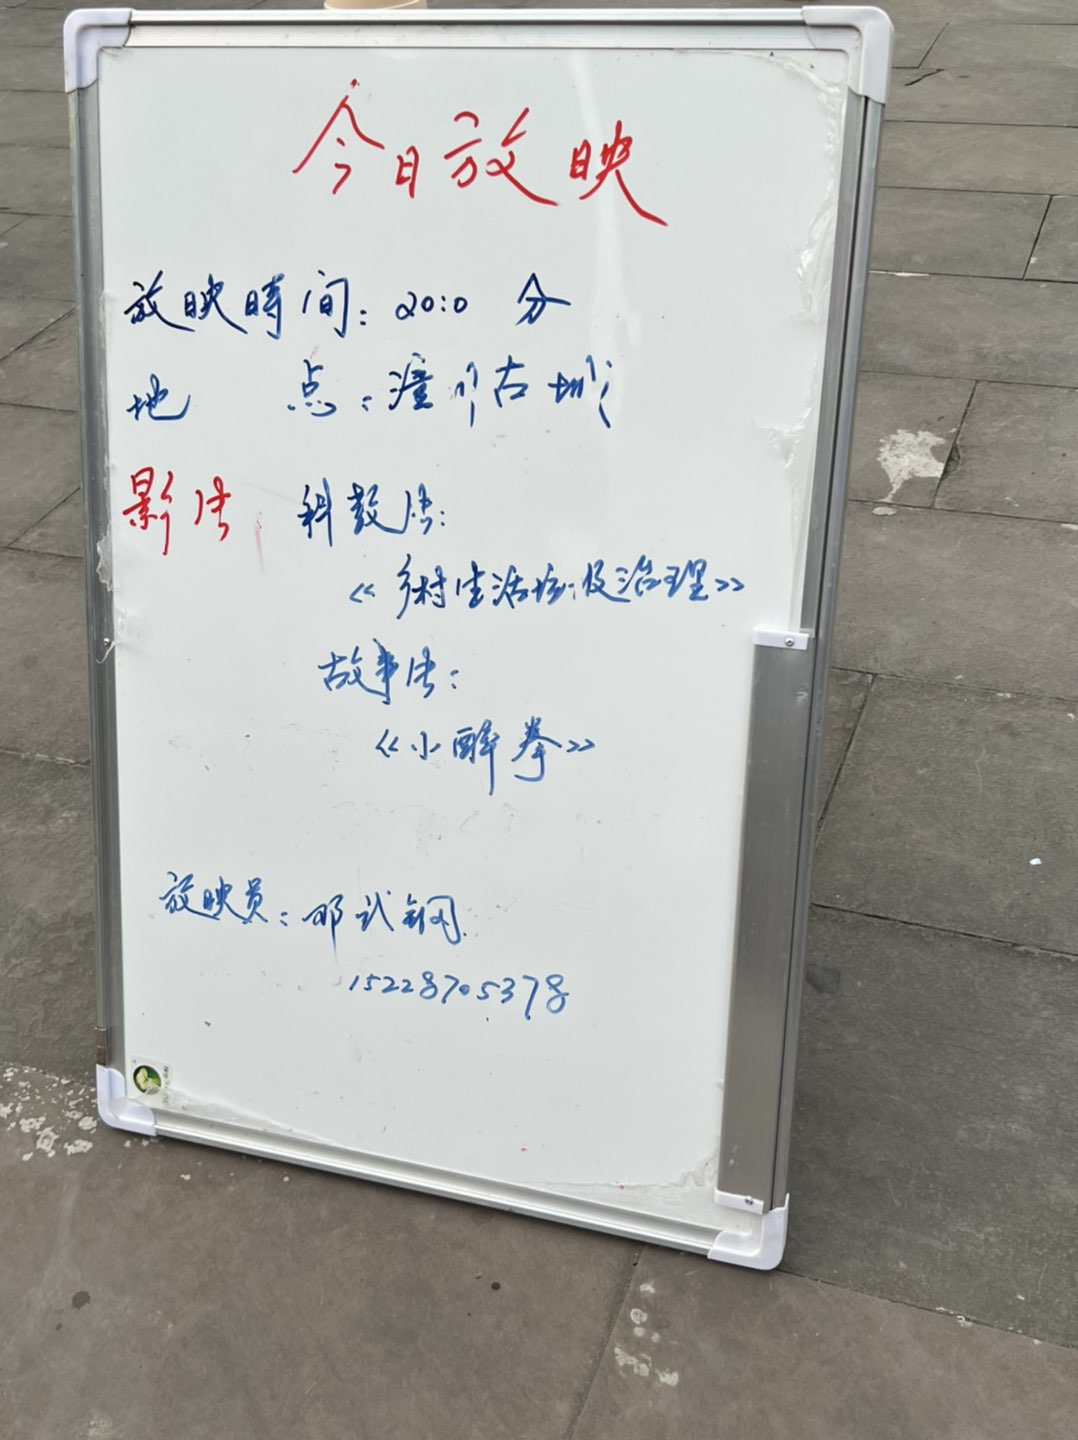 今日放映
放映時间：20:0 分
地 点：潼川古城
影片 科教片：
《乡村生活垃圾治理》
故事片：
《小醉拳》
放映员：邓武钢
15228705378